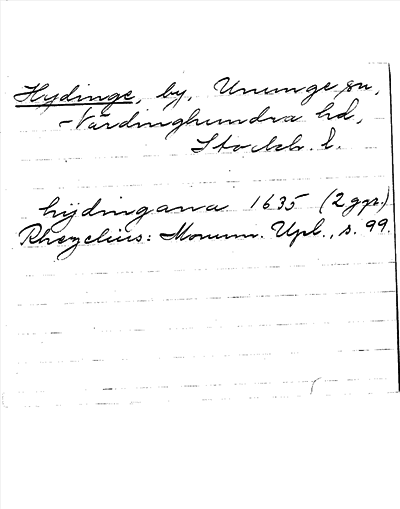 Hydinge, by, Ununge sn,
Närdinghundra hd,
Stockh. l.
hijdingana 1635 (2 ggr.)
Rhezelius: Monum. Upl., s. 99.